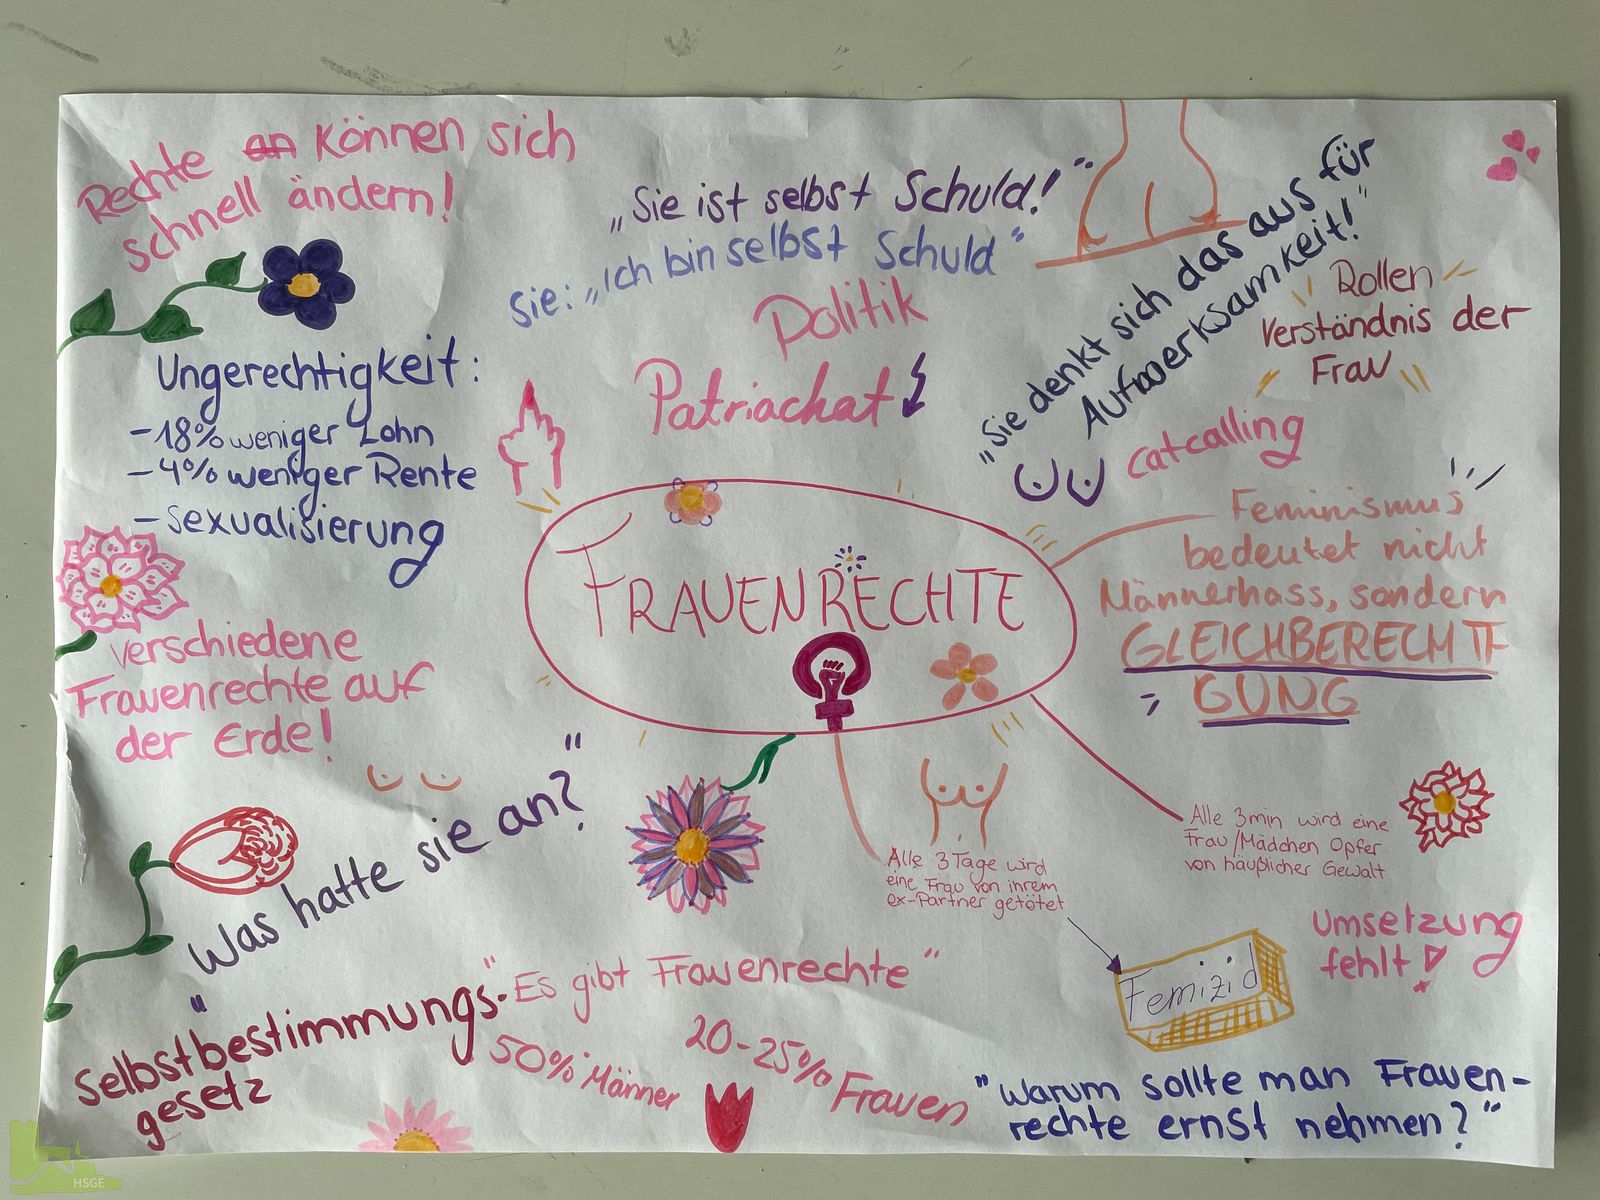 Rechte an können sich
schnell ändern!
„Sie ist selbst Schuld!"
Sie: „Ich bin selbst Schuld"
Politik
Patriachat
„Sie denkt sich das aus für
Aufmerksamkeit!"
Rollen
Verständnis der
Frau
catcalling
Ungerechtigkeit:
-18% weniger Lohn
-4% weniger Rente
-sexualisierung
FRAUENRECHTE
Feminismus
bedeutet nicht
Männerhass, sondern
GLEICHBERECHTI
GUNG
verschiedene
Frauenrechte auf
der Erde!
"Was hatte sie an?"
Alle 3 Tage wird
eine Frau von ihrem
ex-Partner getötet
Alle 3min wird eine
Frau/Mädchen Opfer
von häußlicher Gewalt
Femizid
Umsetzung
fehlt!
Selbstbestimmungs-
gesetz
"Es gibt Frauenrechte"
50% Männer
20-25% Frauen
"Warum sollte man Frauen-
rechte ernst nehmen?"
HSGE